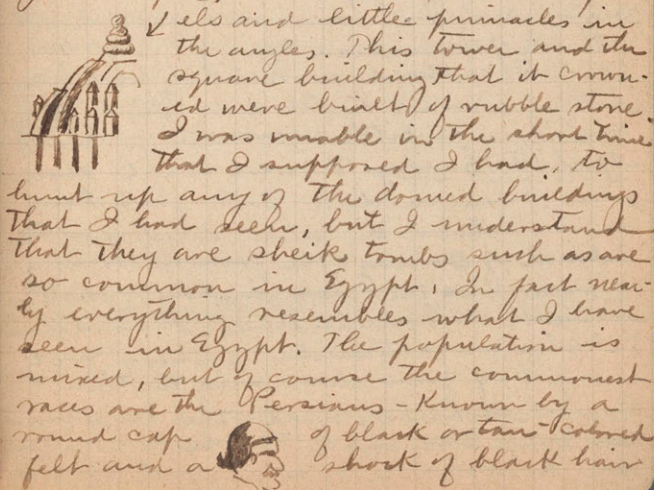 els and little pinnacles in
the angles. This tower and the
square building that it crown-
ed were built of rubble stone.
I was unable in the short time
that I supposed I had, to
hunt up any of the domed buildings
that I had seen, but I understand
that they are sheik tombs such as are
so common in Egypt. In fact near-
ly everything resembles what I have
seen in Egypt. The population is
mixed, but of course the commonest
races are the Persians - Known by a
round cap of black or tan-colored
felt and a shock of black hair